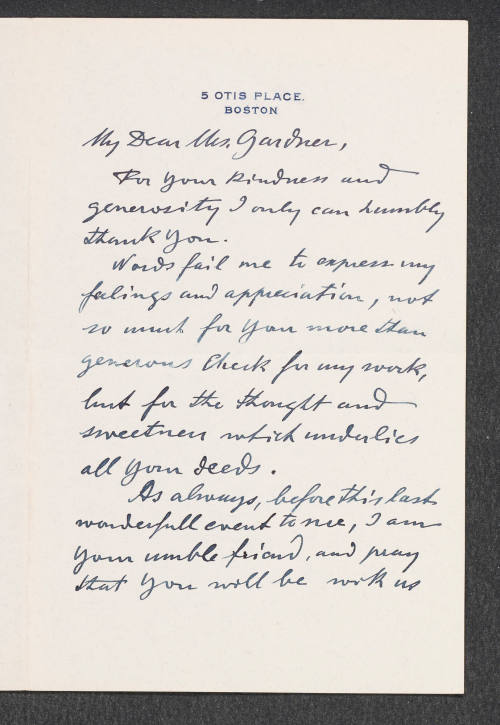 5 OTIS PLACE.
BOSTON
My Dear Mrs. Gardner,
For your kindness and
generosity I only can humbly
thank you.
Words fail me to express my
felings and appreciation, not
so much for your more than
generous Check for my work,
but for the thought and
sweetness which underlies
all your deeds.
As always, before this last
wonderfull event to me, I am
your umble friend, and pray
that you will be with us